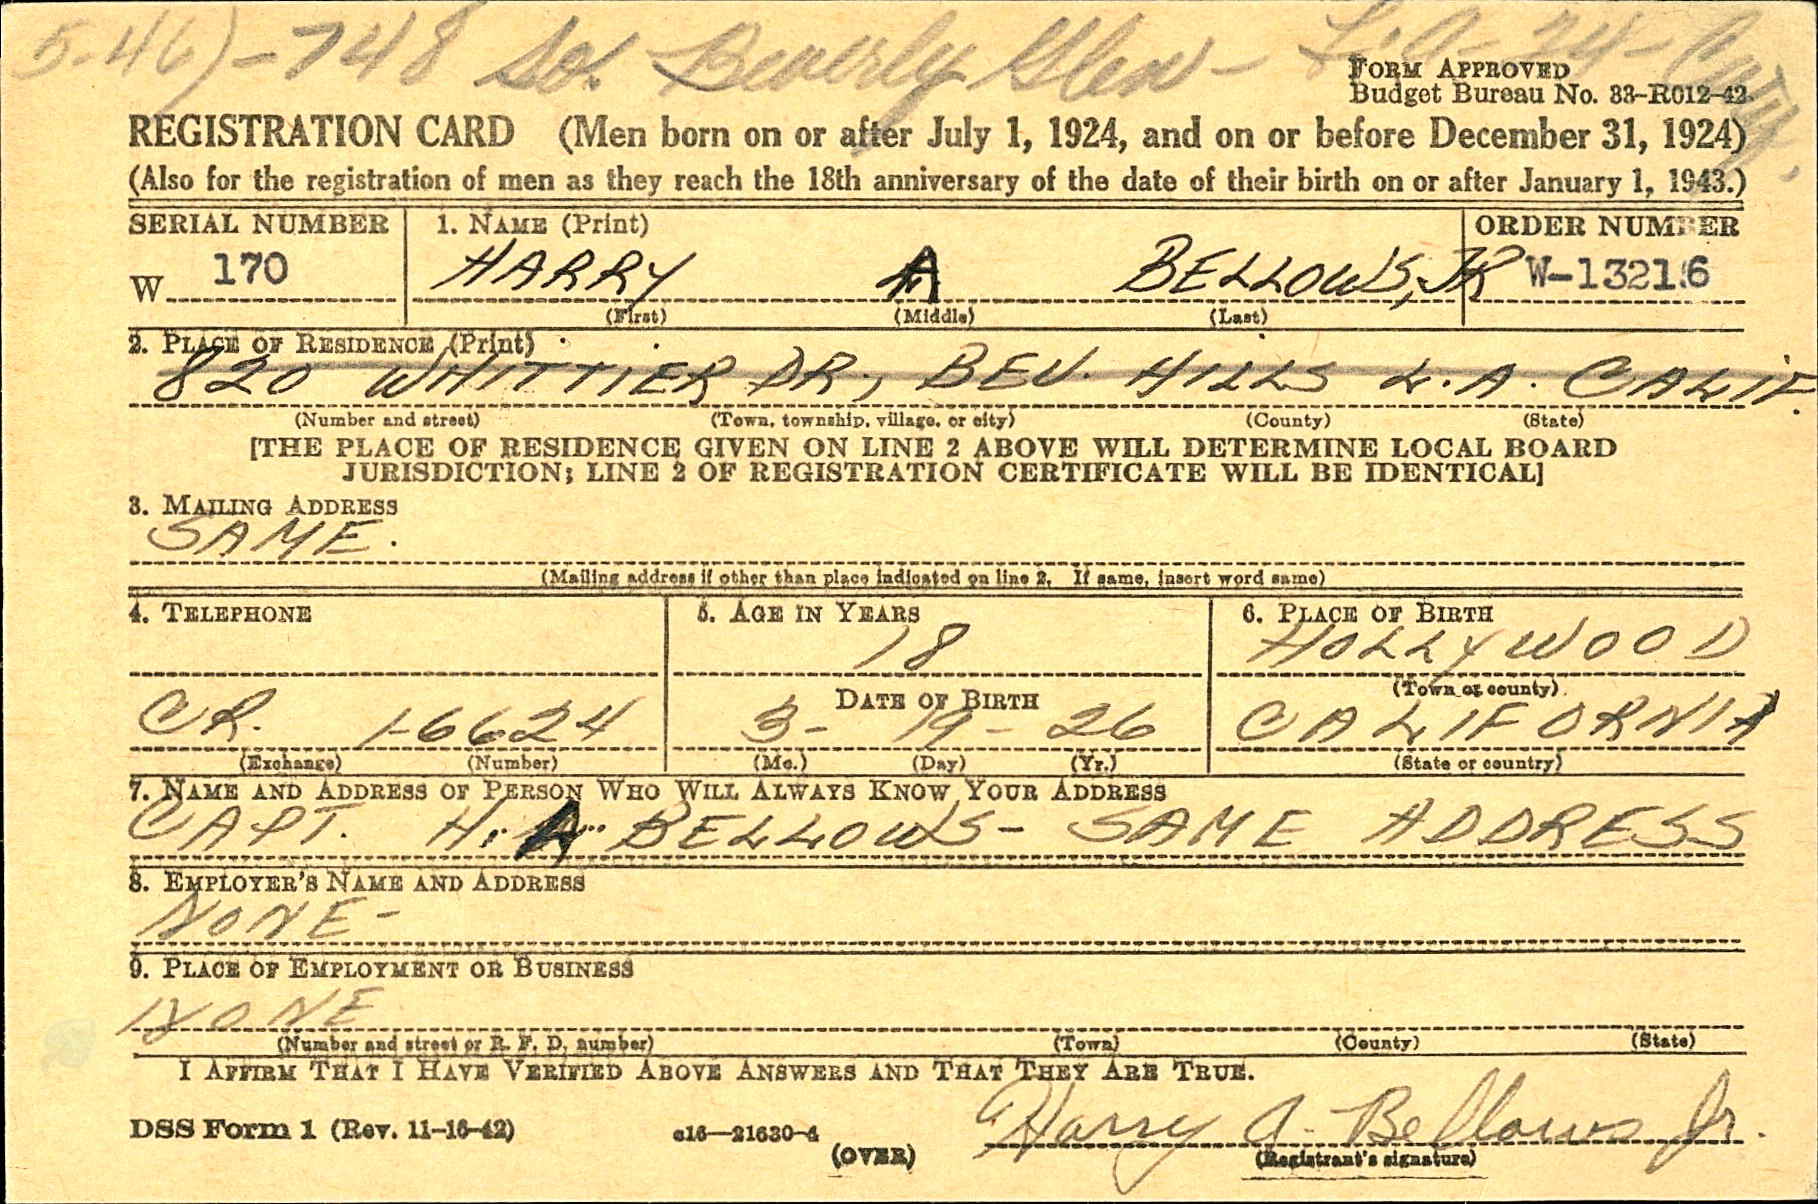 5-46)-748 So. Beverly Glen - L.A-24-City.
FORM APPROVED
Budget Bureau No. 33-R012-42
REGISTRATION CARD (Men born on or after July 1, 1924, and on or before December 31, 1924)
(Also for the registration of men as they reach the 18th anniversary of the date of their birth on or after January 1, 1943.)
SERIAL NUMBER 1. NAME (Print) ORDER NUMBER
W 170 HARRY A BELLOWS, JR W-13216
(First) (Middle) (Last)
2. PLACE OF RESIDENCE (Print)
820 WHITTIER DR., BEV. HILLS L.A. CALIF.
(Number and street) (Town, township, village, or city) (County) (State)
[THE PLACE OF RESIDENCE GIVEN ON LINE 2 ABOVE WILL DETERMINE LOCAL BOARD
JURISDICTION; LINE 2 OF REGISTRATION CERTIFICATE WILL BE IDENTICAL]
3. MAILING ADDRESS
SAME.
(Mailing address if other than place indicated on line 2. If same, insert word same)
4. TELEPHONE 5. AGE IN YEARS 6. PLACE OF BIRTH
18 HOLLYWOOD
DATE OF BIRTH (Town or county)
CR. 1-6624 3- 19- 26 CALIFORNIA
(Exchange) (Number) (Mo.) (Day) (Yr.) (State or country)
7. NAME AND ADDRESS OF PERSON WHO WILL ALWAYS KNOW YOUR ADDRESS
CAPT. H. A. BELLOWS - SAME ADDRESS
8. EMPLOYER'S NAME AND ADDRESS
NONE-
9. PLACE OF EMPLOYMENT OR BUSINESS
NONE
(Number and street or R. F. D. number) (Town) (County) (State)
I AFFIRM THAT I HAVE VERIFIED ABOVE ANSWERS AND THAT THEY ARE TRUE.
DSS Form 1 (Rev. 11-16-42) c16—21630-4 Harry A. Bellows Jr.
(OVER) (Registrant's signature)